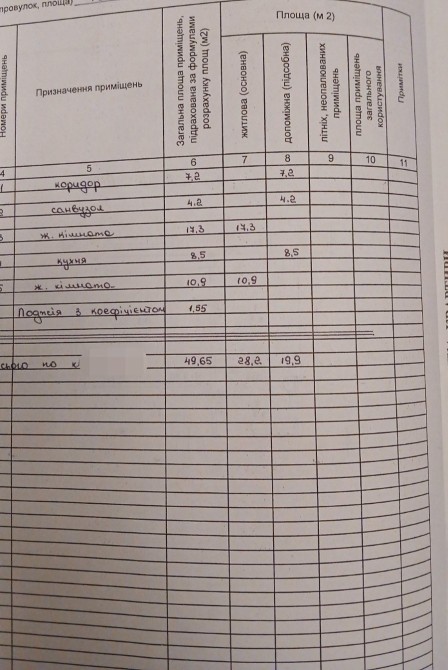 провулок, площа)
Номери приміщень
Призначення приміщень
Загальна площа приміщень, підрахована за формулами розрахунку площ (м2)
Площа (м 2)
житлова (основна)
допоміжна (підсобна)
літніх, неопалюваних приміщень
площа приміщень загального користування
Примітки
4 5 6 7 8 9 10 11
1 коридор 7,2 7,2
2 санвузол 4.2 4.2
3 ж. кімната 17,3 17,3
кухня 8,5 8,5
ж. кімната 10,9 10,9
Лоджія з коефіцієнтом 1.55
сього по к 49,65 28,2 19,9